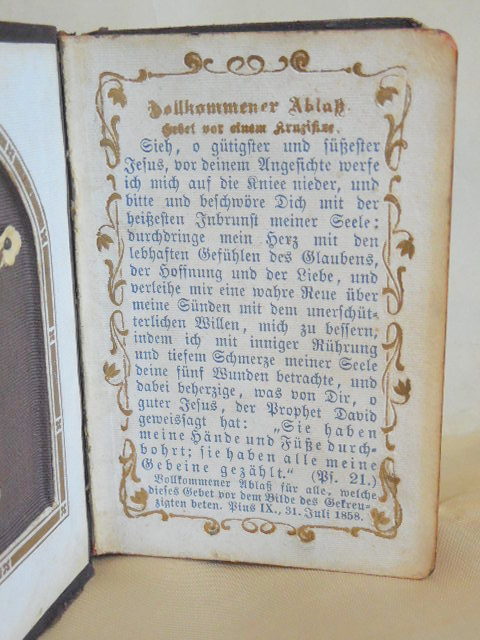 Vollkommener Ablaß.
Gebet vor einem Kruzifixe.
Sieh, o gütigster und süßester
Jesus, vor deinem Angesichte werfe
ich mich auf die Kniee nieder, und
bitte und beschwöre Dich mit der
heißesten Inbrunst meiner Seele:
durchdringe mein Herz mit den
lebhaften Gefühlen des Glaubens,
der Hoffnung und der Liebe, und
verleihe mir eine wahre Reue über
meine Sünden mit dem unerschüt-
terlichen Willen, mich zu bessern,
indem ich mit inniger Rührung
und tiefem Schmerze meiner Seele
deine fünf Wunden betrachte, und
dabei beherzige, was von Dir, o
guter Jesus, der Prophet David
geweissagt hat: „Sie haben
meine Hände und Füße durch-
bohrt; sie haben alle meine
Gebeine gezählt.“ (Ps. 21.)
Vollkommener Ablaß für alle, welche
dieses Gebet vor dem Bilde des Gekreu-
zigten beten. Pius IX., 31. Juli 1858.